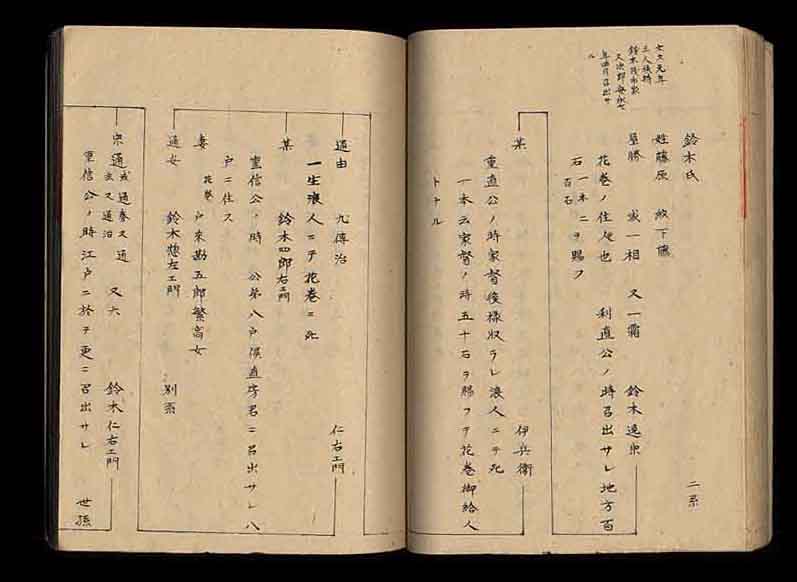 鈴木氏 二系
姓藤原 紋下藤
星勝 或一相 又一霜 鈴木逸宗
花巻ノ住人也 利直公ノ時召出サレ地方百
石一本ニヲ賜フ
百石
某 伊兵衛
重直公ノ時家督後様収ラレ浪人ニテ死
一本云家督ノ時五十石ヲ賜フテ花巻御給人
トナル
通由 九傳治 仁右エ門
一生浪人ニテ花巻ニ死
某 鈴木四郎右エ門
重信公ノ時 公弟八戸侯直房君ニ召出サレ八
戸ニ住ス
妻 花巻 戸来勘五郎繁高女
通女 鈴木惣左エ門 別系
宗通 或通春又通 又六 鈴木仁右エ門
玄又通治
重信公ノ時江戸ニ於テ更ニ召出サレ 世孫